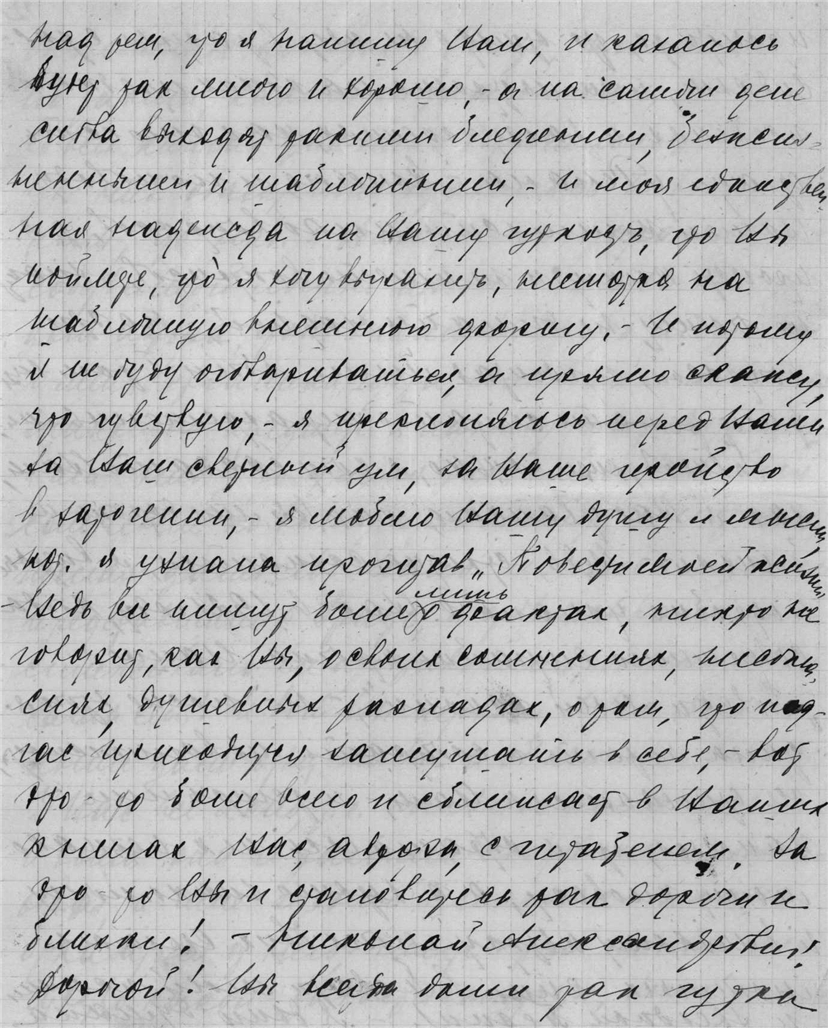 над тем, что я напишу Вам, и казалось
будет так много и хорошо, - а на самом деле
слова выходят такими бледными, безжиз-
ненными и шаблонными, - и моя единствен-
ная надежда на Вашу чуткость, что Вы
поймете, что я хочу выразить, несмотря на
шаблонную внешнюю форму. - И потому
я не буду оговариваться, а прямо скажу,
что чувствую, - я преклоняюсь перед Вами
за Ваш светлый ум, за Ваше геройство
в заточении, - я люблю Вашу душу и мысли,
кот. я узнала прочитав „Повести моей жизни"
- Ведь все пишут больше лишь о фактах, никто не
говорит, как Вы, о своих сомнениях, несогла-
сиях, душевных разладах, о том, что под-
час приходится заглушать в себе, - вот
это-то больше всего и сближает в Ваших
книгах Вас, автора, с читателем. За
это-то Вы и становитесь так дороги и
близки! - Николай Александрович!
Дорогой! Вы всегда были так чутки